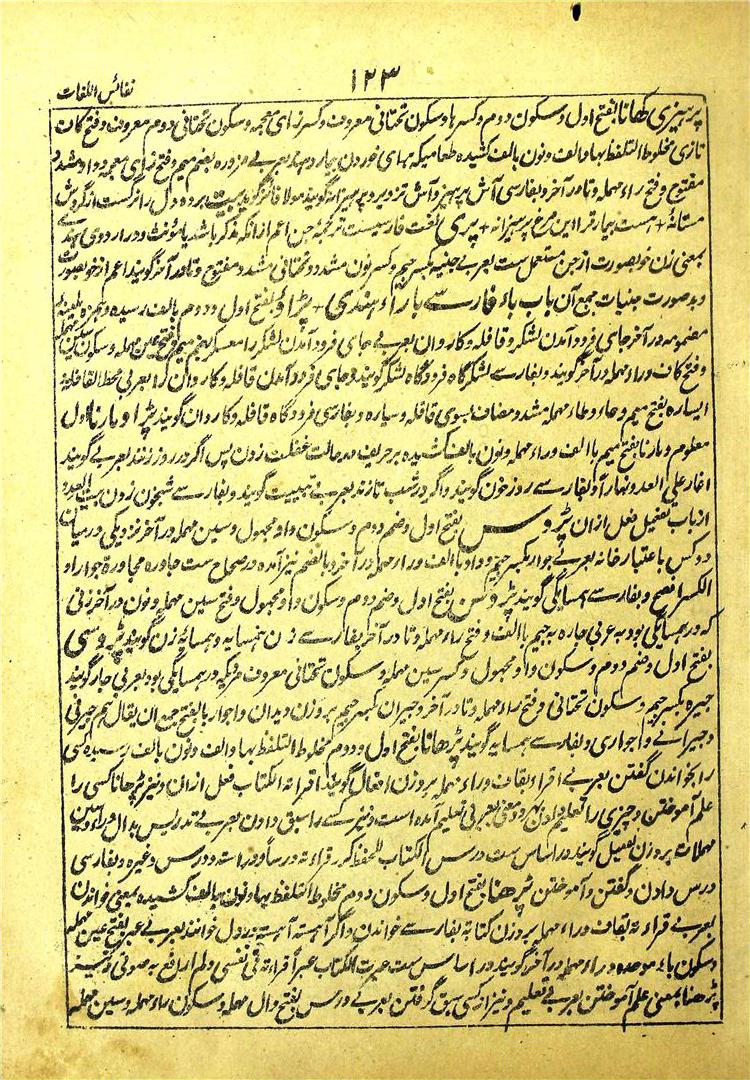 نفائس اللغات
۱۲۳
پرہیزی کھانا بفتح اول و سکون دوم و کسر ہا و سکون تحتانی معروف و کسر زای معجمہ و سکون تحتانی دوم معروف و فتح کاف
تازی مخلوط التلفظ بہا و الف و نون بالف کشیدہ طعامیکہ برای خوردن بیمار دہند بعربے مزورہ بضم میم و فتح زای معجمہ و واو مشدد
مفتوح و فتح راء مہملہ و تا در آخر و بفارسی آش پرہیز و آش تزویر و پرہیزانہ گویند مولانا
مستانۂ + ہست بیمار ترا این مرغ پرہیزانہ + پری لغت فارسیست ترجمۂ جن اعم از انکہ مذکر باشد یا مؤنث و در اردوی ہندے
بمعنی زن خوبصورت از جن مستعمل ست بعربے جنیہ بکسر جیم و کسر نون مشدد و تحتانی مشدد مفتوح و تا در آخر گویند اعم از خوبصورت
و بدصورت جنیات جمع آن باب باء فارسے با راء ہندی + پڑاؤ بفتح اول و دوم بالف رسیدہ و ہمزہ
مضمومہ در آخر جای فرود آمدن لشکر و قافلہ و کاروان بعربے جای فرود آمدن لشکر را معسکر بضم میم و فتح عین مہملہ و سکون سین مہملہ
و فتح کاف و راء مہملہ در آخر گویند و بفارسے لشکرگاہ فرودگاہ لشکر گویند و جای فرود آمدن قافلہ و کاروان را بعربی محط القافلۃ
السیارہ بفتح میم و حاء و طاء مہملہ مشدد مضاف بسوی قافلہ و سیارہ و بفارسی فرودگاہ قافلہ و کاروان گویند پڑاو مارنا اول
معلوم و مارنا بفتح میم با الف و راء مہملہ و نون بالف کشیدہ بر حریف در حالت غفلت زدن پس اگر در روز زنند بعربے گویند
اغار علی العدو نہارا و بفارسے روز خون گویند و اگر در شب تازند بعربے تبییت گویند و بفارسے شبخون زدن بیت العدو
از باب تفعیل فعل ازان پڑوس بفتح اول و ضم دوم و سکون واو مجہول و سین مہملہ در آخر نزدیکی درمیان
دو کس باعتبار خانہ بعربے جوار بکسر جیم و واو با الف و راء مہملہ در آخر و بالضم نیز آمدہ در صحاح ست جاورہ مجاورۃ جوارا و
الکسر افصح و بفارسے ہمسایگی گویند پڑوسن بفتح اول و ضم دوم و سکون واو مجہول و فتح سین مہملہ و نون در آخر زنی
کہ در ہمسایگی بود بہ عربی جارہ بجیم با الف و فتح راء مہملہ و تا در آخر بفارسے زن ہمسایہ و ہمسایہ زن گویند پڑوسی
بفتح اول و ضم دوم و سکون واو مجہول و کسر سین مہملہ و سکون تحتانی معروف مردیکہ در ہمسایگی بود بعربی جار گویند
جیرہ بکسر جیم و سکون تحتانی و فتح راء مہملہ و تا در آخر و جیران بکسر جیم بروزن دیدان و اجوار بالفتح جمع ان یقال ہم جیرنی
و جیرانے و اجواری و بفارسے ہمسایہ گویند پڑھانا بفتح اول و دوم مخلوط التلفظ بہا و الف و نون بالف رسیدہ کسی
را بخواندن گفتن بعربے اقراء بقاف و راء مہملہ بروزن افعال گویند اقراتہ الکتاب فعل ازان و نیز پڑھانا کسی را
علم آموختن و چیزی را تعلیم دادن بہر دو معنی بعربی تعلیم آمدہ است و نیز کسے را سبق دادن بعربے تدریس بدال و راء و سین
مہملات بروزن تفعیل گویند در اساس ست درس الکتاب للحفظ کرر قراءتہ درسا و دراسۃ و درس وغیرہ و بفارسی
درس دادن و گفتن و آموختن پڑھنا بفتح اول و سکون دوم مخلوط التلفظ بہا و نون بالف کشیدہ بمعنی خواندن
بعربے قراءۃ بقاف و راء مہملہ بروزن کتابۃ بفارسے خواندن و اگر آہستہ آہستہ در دل خوانند بعربے عبر بفتح عین مہملہ
و سکون باء موحدہ و راء مہملہ در آخر گویند در اساس ست عبرت الکتاب عبرا قراءتہ فی نفسی و لم ارفع بہ صوتی و نیز
پڑھنا بمعنی علم آموختن بعربے تعلیم و نیز از کسی سبق گرفتن بعربے درس بفتح دال مہملہ و سکون راء مہملہ و سین مہملہ